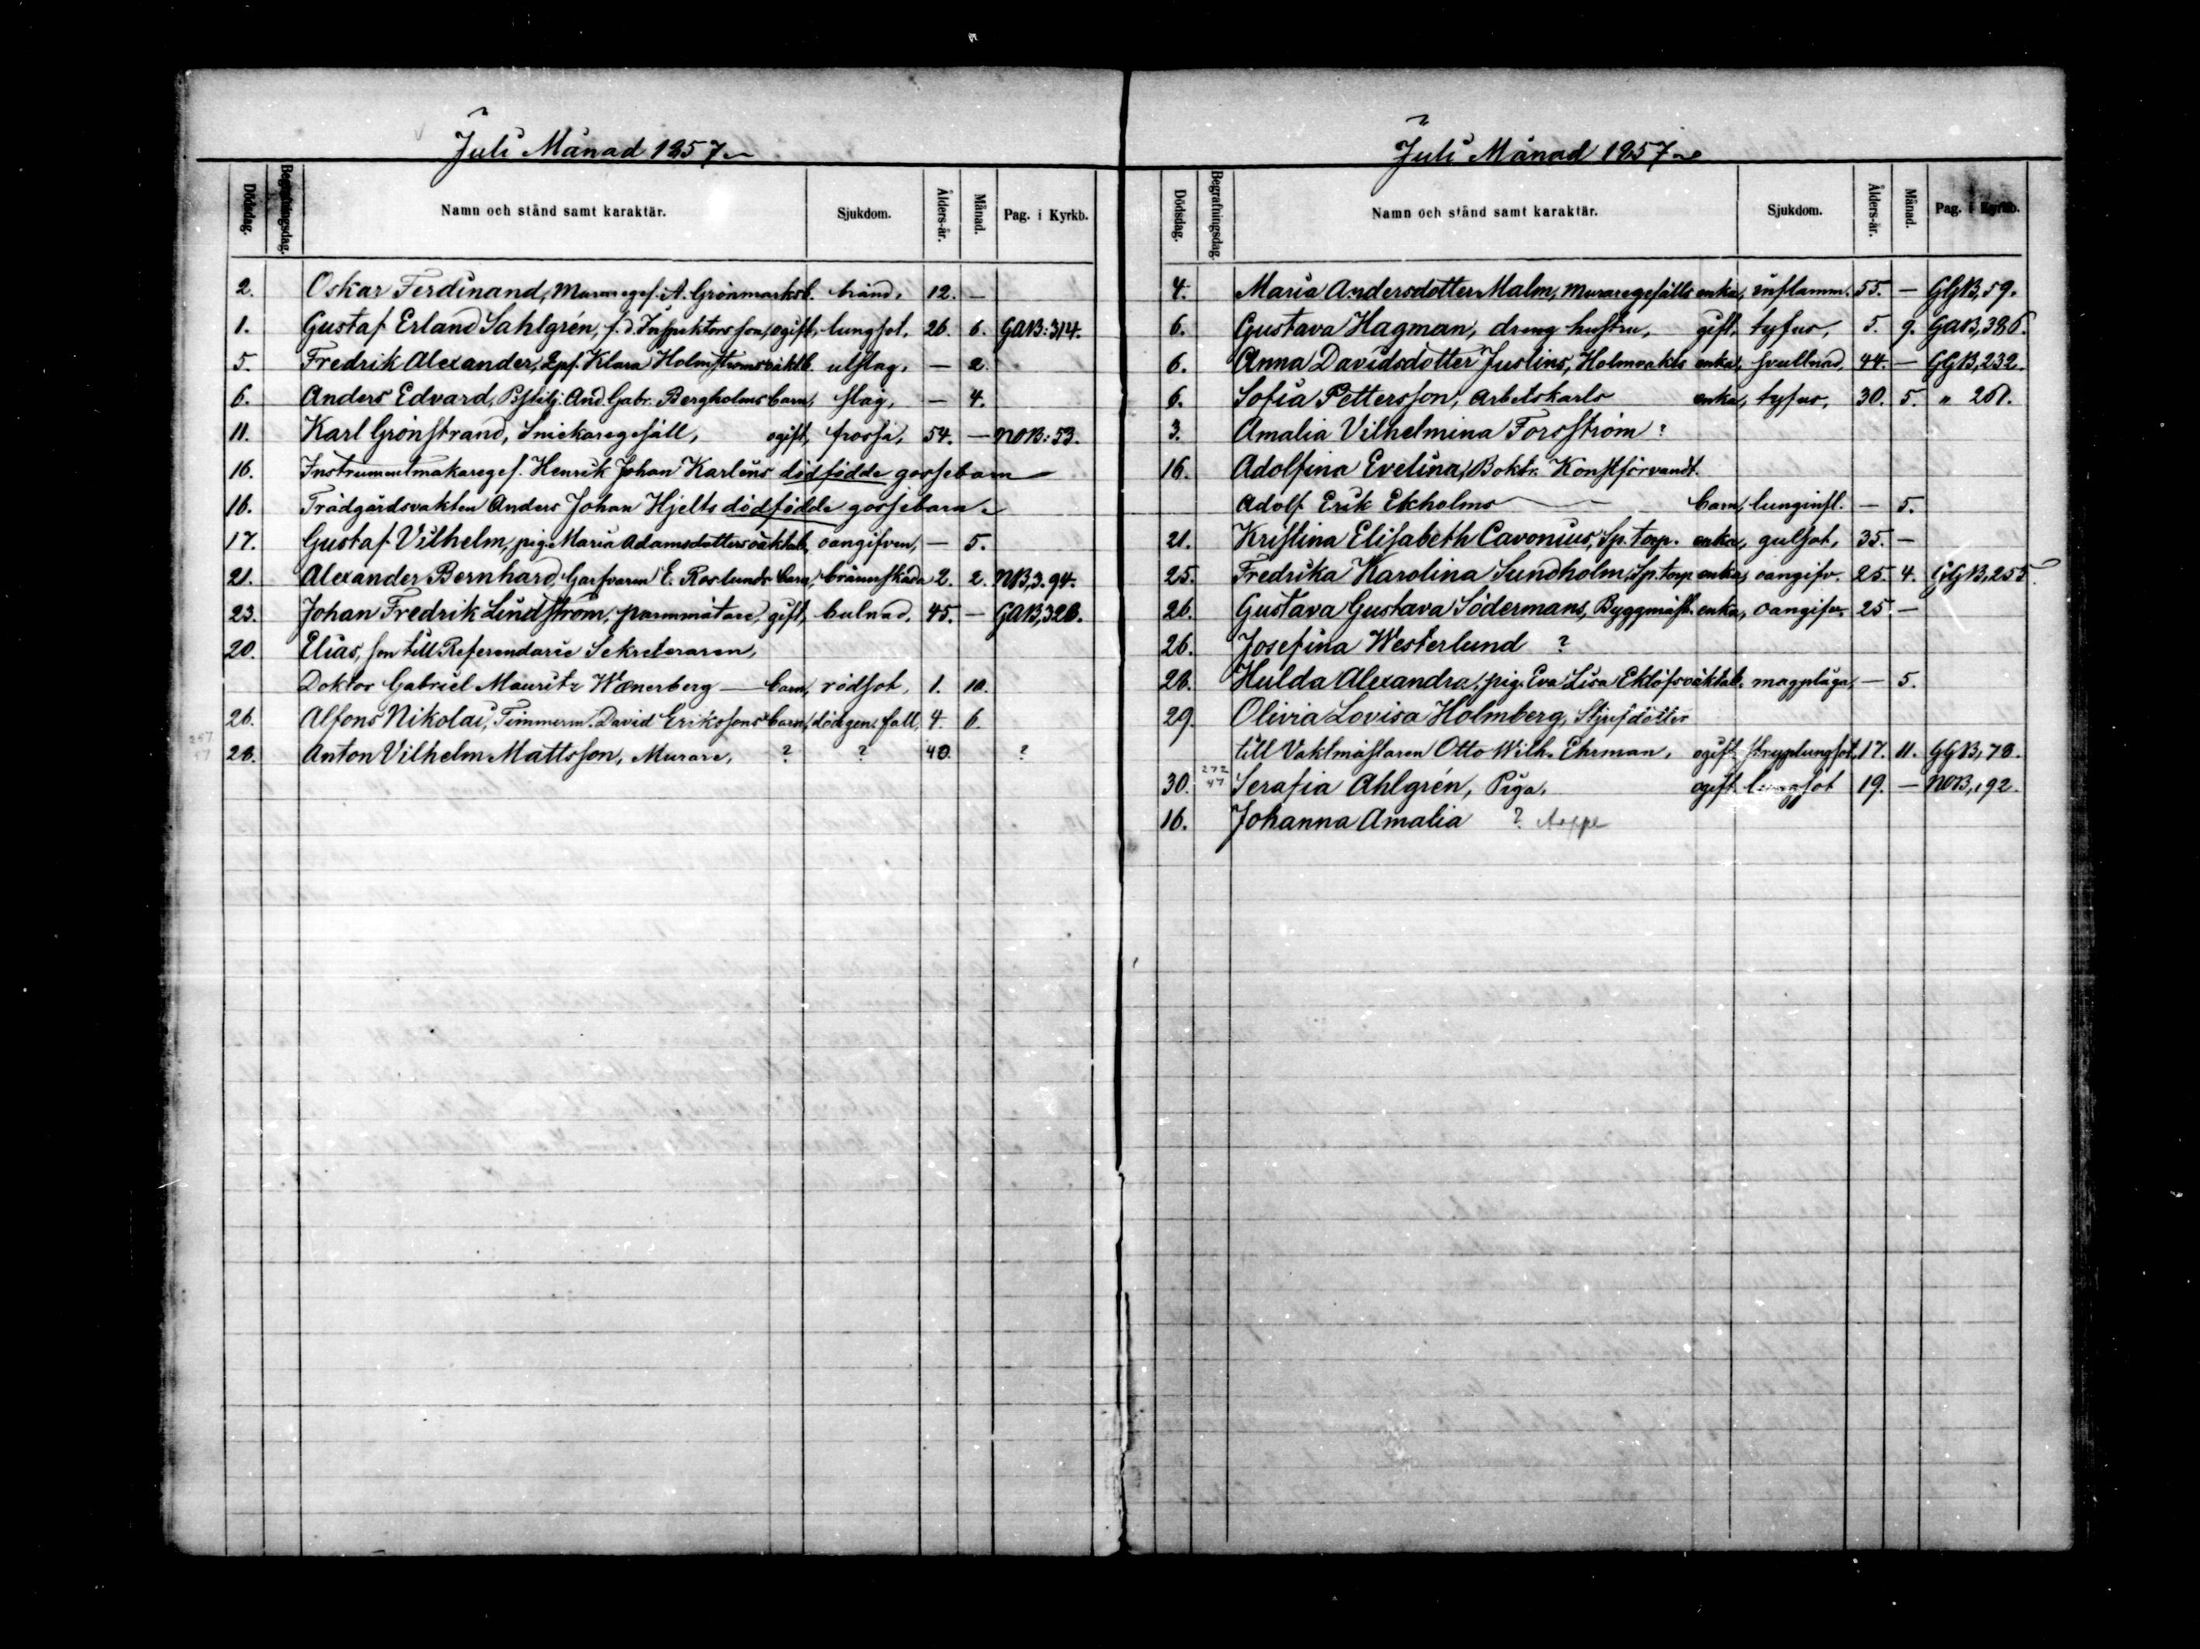 Juli Månad 1857
Dödsdag. Begrafningsdag. Namn och stånd samt karaktär. Sjukdom. Ålders-år. Månad. Pag. i Kyrkb.
2. Oskar Ferdinand, Muraregef. A. Grönmarks b. bränd, 12. —
1. Gustaf Erland Sahlgrén, f. d. Inspektors son, ogift, lungsot, 26. 6. GAB: 314.
5. Fredrik Alexander, Klara Holmströms oäkta b. utslag, — 2.
6. Anders Edvard, And. Gabr. Bergholms barn, slag, — 4.
11. Karl Grönstrand, Snickaregesäll, ogift, frossa, 54. — NOB: 53.
16. Instrumentmakareges. Henrik Johan Karlens dödfödde gossebarn
16. Trädgårdsvakten Anders Johan Hjelts dödfödde gossebarn
17. Gustaf Vilhelm, pig. Maria Adamsdotters oäkta b. oangifven, — 5.
21. Alexander Bernhard, Garfvaren E. Roslunds barn, brännskada 2. 2. NB, 2. 94.
23. Johan Fredrik Lindström, parmmätare, gift, bulnad, 45. — GAB, 328.
20. Elias, son till Referendarie Sekreteraren,
Doktor Gabriel Mauritz Wænerberg — barn, rödsot, 1. 10.
26. Alfons Nikolai, Timmerm. David Erikssons barn, död gen. fall, 4. 6.
28. Anton Vilhelm Mattsson, Murare, ? ? 40. ?
Juli Månad 1857
Dödsdag. Begrafningsdag. Namn och stånd samt karaktär. Sjukdom. Ålders-år. Månad. Pag. i Kyrkb.
4. Maria Andersdotter Malm, Muraregesälls enka, inflamm. 55. — GGB, 59.
6. Gustava Hagman, dreng hustru, gift, tyfus, 5. 9. GAB, 386.
6. Anna Davidsdotter Justins, Holmvakts enka, svullnad, 44. — GGB, 232.
6. Sofia Pettersson, Arbetskarls enka, tyfus, 30. 5. " 261.
3. Amalia Vilhelmina Forsström ?
16. Adolfina Evelina, Boktr. Konstförvandt.
Adolf Erik Ekholms — barn, lunginfl. — 5.
21. Kristina Elisabeth Cavonius, Sp. torp. enka, gulsot, 35. —
25. Fredrika Karolina Sundholm, Sp. torp. enka, oangifv. 25. 4. GGB, 255.
26. Gustava Gustava Södermans, Byggmäst. enka, oangifv. 25 —
26. Josefina Westerlund ?
28. Hulda Alexandra, pig. Eva Lisa Eklöfs oäkta b. magplåga, — 5.
29. Olivia Lovisa Holmberg, Stjufdotter
till Vaktmästaren Otto Wilh. Ehrman, ogift, stryplungsot, 17. 11. GGB, 78.
30. 272 47 Serafia Ahlgrén, Piga, ogift lungsot 19. — NOB, 192.
16. Johanna Amalia ?